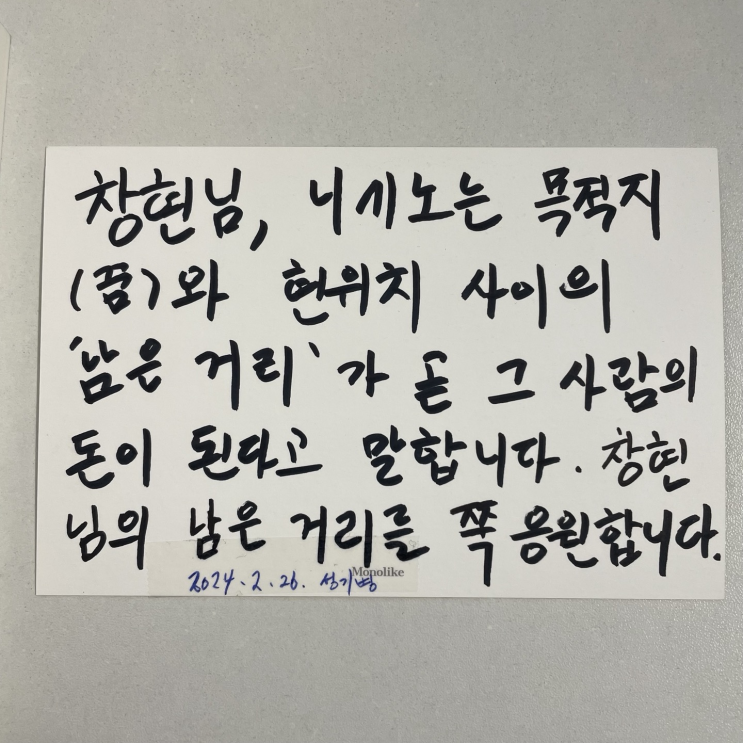 창현님, 니시노는 목적지
(꿈)와 현위치 사이의
'남은 거리'가 곧 그 사람의
돈이 된다고 말합니다. 창현
님의 남은 거리를 쭉 응원합니다.
2024. 2. 26.
Monolike